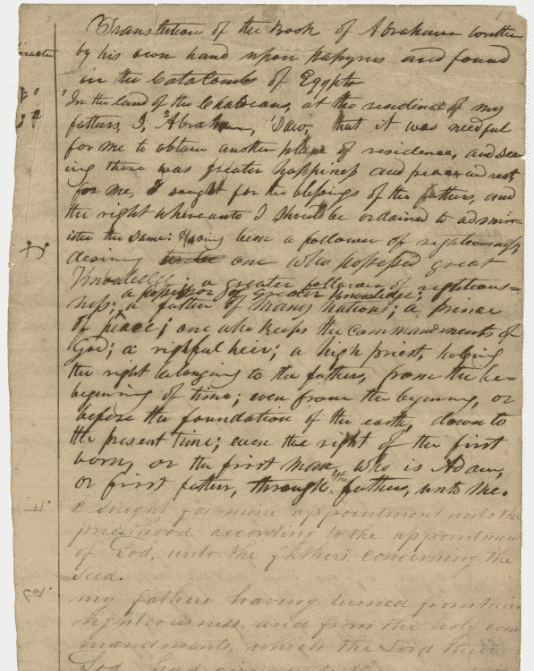 Translation of the Book of Abraham written
by his own hand upon papyrus and found
in the Catacombs of Egypt
In the land of the Chaldeans, at the residence of my
fathers, I, Abraham, saw, that it was needful
for me to obtain another place of residence, and see-
ing there was greater happiness and peace and rest
for me, I sought for the blessings of the fathers, and
the right whereunto I should be ordained to admin-
ister the same: Having been a follower of righteousness,
desiring one who possessed great
Knowledge; a greater follower of righteous-
a possessor of greater knowledge;
ness; a father of many nations; a prince
of peace; one who keeps the commandments of
God; a rightful heir; a high priest, holding
the right belonging to the fathers, from the be-
begining of time; even from the begining, or
before the foundation of the earth, down to
the present time; even the right of the first
born, or the first man, who is Adam,
or first father, through the fathers, unto me.
I sought for mine appointment unto the
priesthood according to the appointment
of God, unto the fathers concerning the
seed.
my fathers having turned from their
righteousness, and from the holy com
mandments, which the Lord their
God